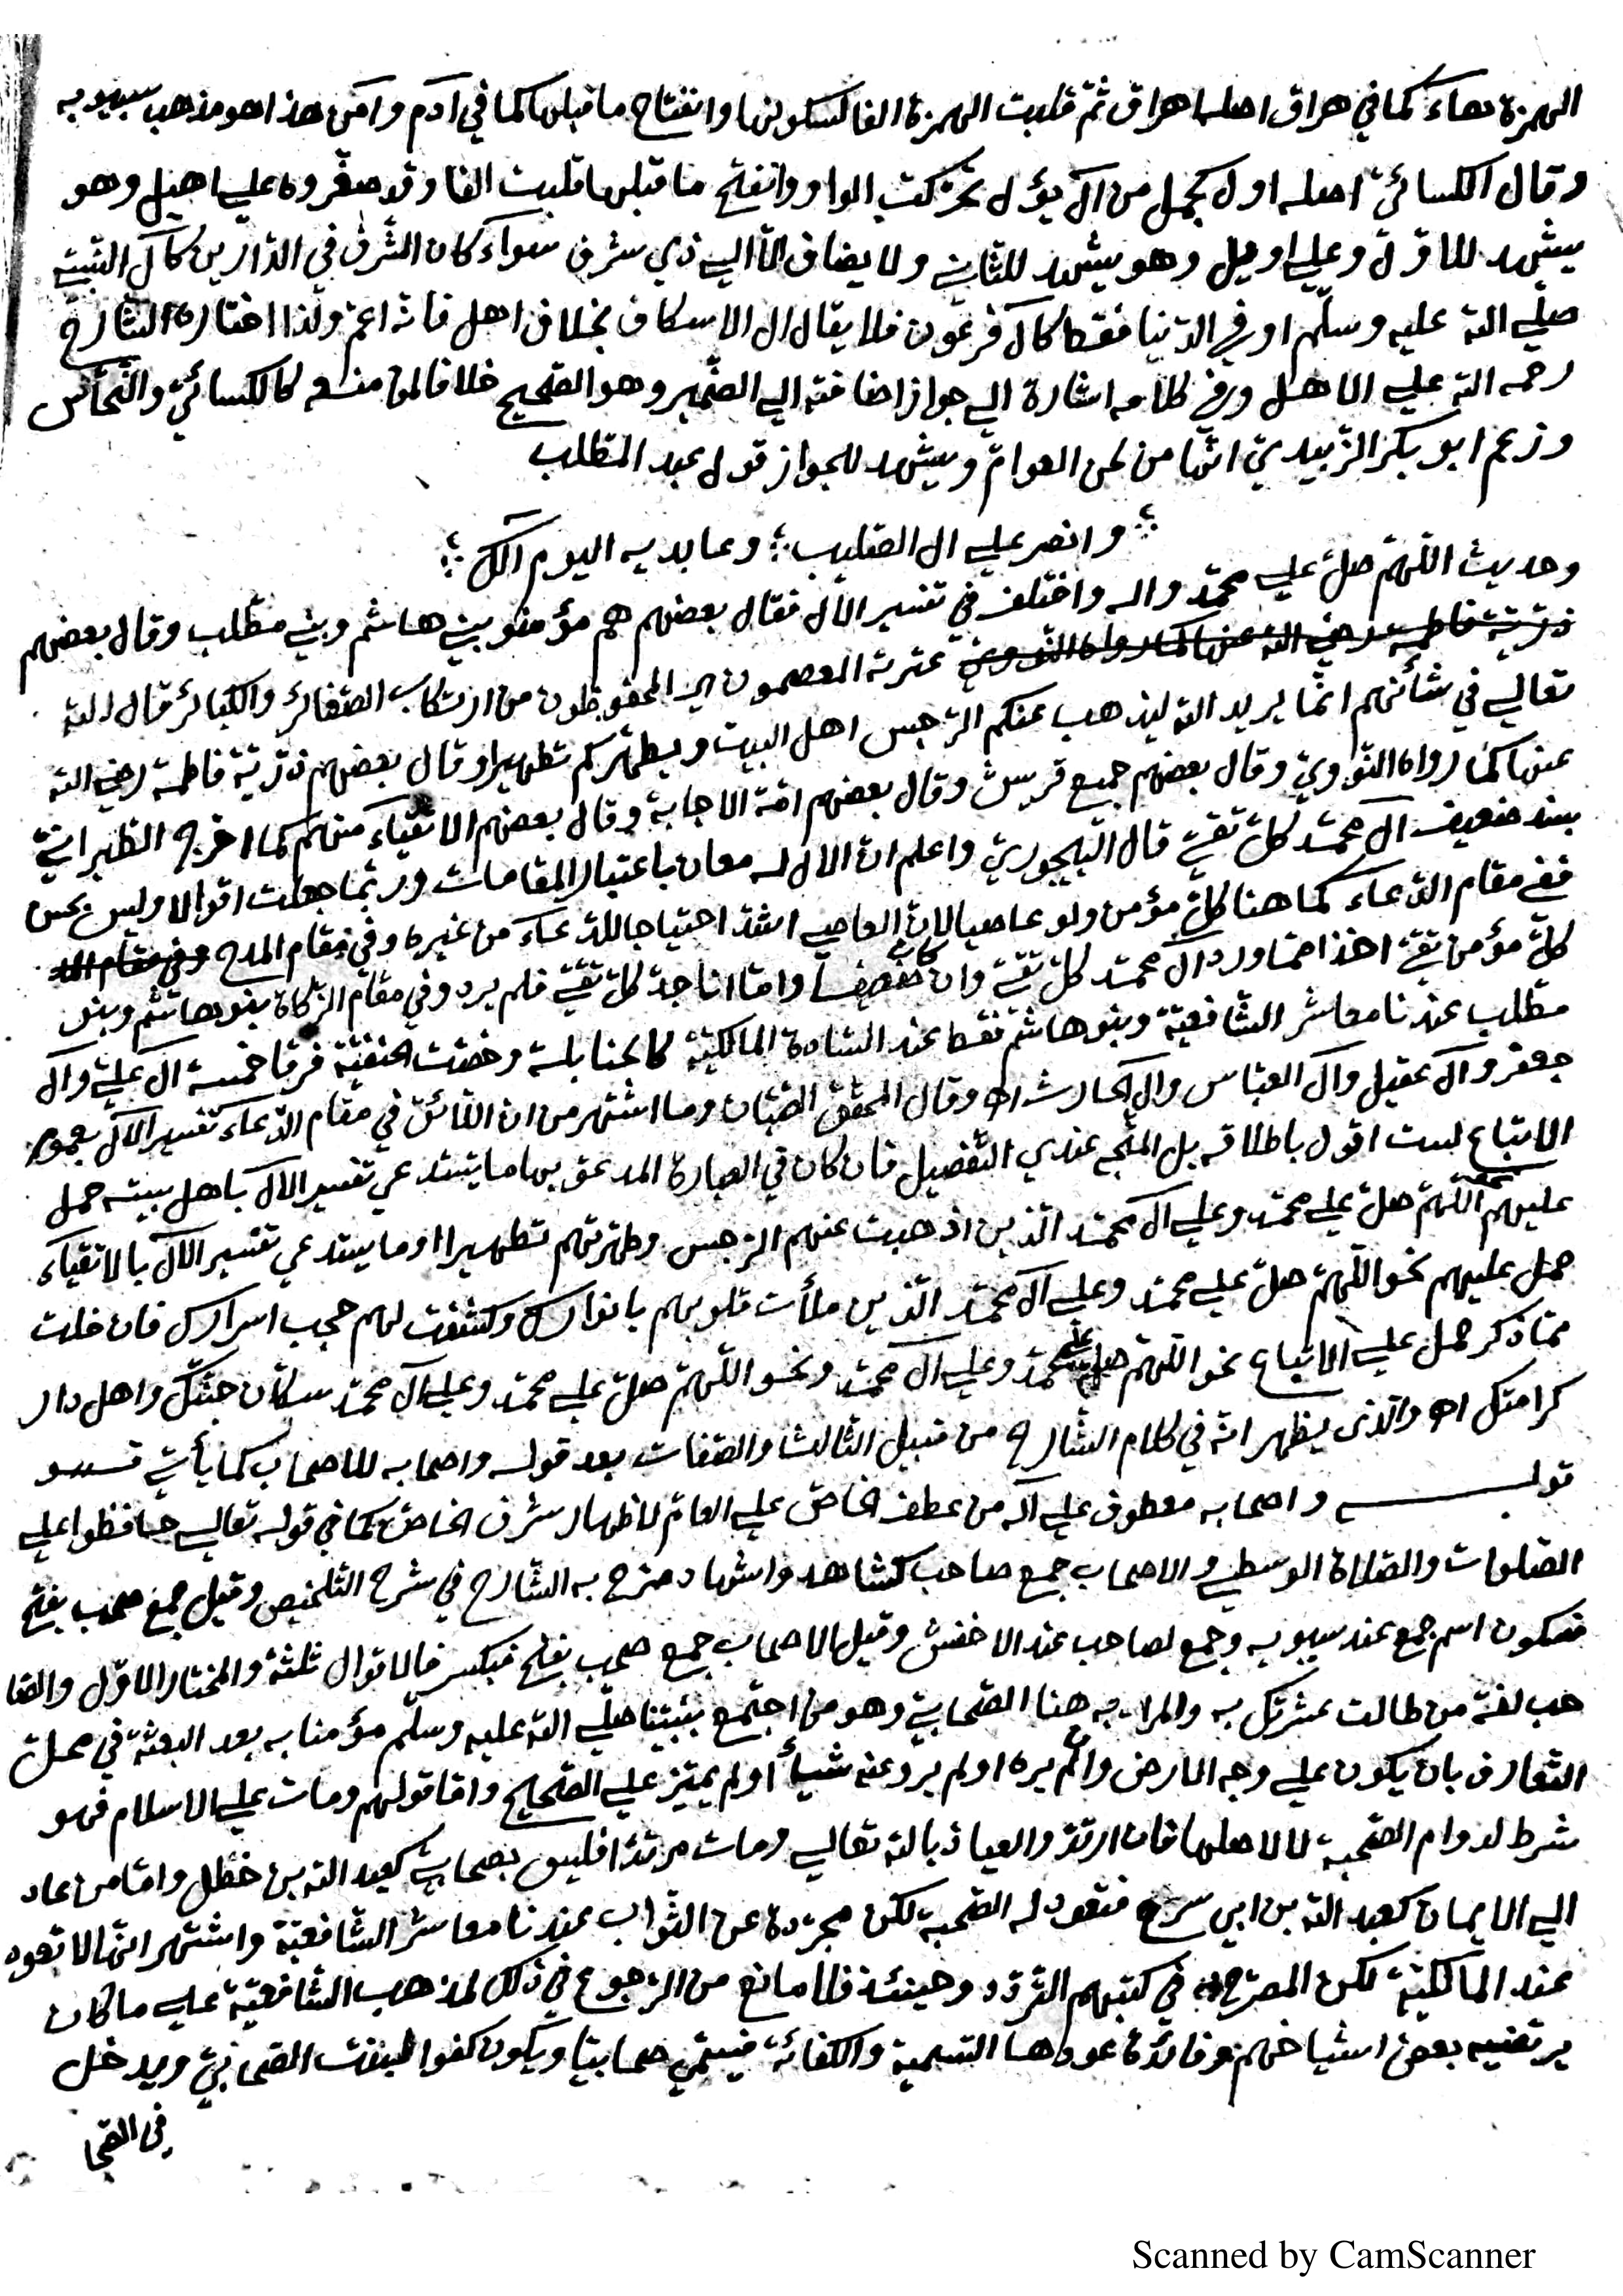 الهمزة هاء كما في هراق اصله اهراق ثمّ قلبت الهمزة الفا لسكونها وانفتاح ما قبلها كما في ادم وامن هذا هو مذهب سيبويه
وقال الكسائيّ اصله اول كجمل من آل يؤل تحرّكت الواو وانفتح ما قبلها قلبت الفا وقد صغّروه على اهيل وهو
يشهد للاوّل وعلى اويل وهو يشهد للثاني ولا يضاف الّا الى ذي شرف سواء كان الشّرف في الدّارين كآل النّبيّ
صلى الله عليه وسلّم او في الدّنيا فقط كآل فرعون فلا يقال ال الاسكاف بخلاف اهل فانّه اعمّ ولذا اختاره الشّارح
رحمه الله على الاهل وفي كلامه اشارة الى جواز اضافته الى الضّمير وهو الصّحيح خلافا لمن منعه كالكسائيّ والنّحّاس
وزعم ابو بكر الزّبيديّ انّها من لحن العوامّ ويشهد للجواز قول عبد المطّلب
وانصر على ال الصّليب ؛ وعابديه اليوم الك
وحديث اللّهمّ صلّ على محمّد واله واختلف في تفسير الآل فقال بعضهم هم مؤمنو بني هاشم وبني مطّلب وقال بعضهم
ذرّيّة فاطمة رضي الله عنها كما رواه النّوويّ عترته المعصومون اي المحفوظون من ارتكاب الصّغائر والكبائر قال الله
تعالى في شأنهم انّما يريد الله ليذهب عنكم الرّجس اهل البيت ويطهّركم تطهيرا وقال بعضهم ذرّيّة فاطمة رضي الله
عنها كما رواه النّوويّ وقال بعضهم جميع قريش وقال بعضهم امّة الاجابة وقال بعضهم الاتقياء منهم كما اخرجه الطّبرانيّ
بسند ضعيف ال محمّد كلّ تقيّ قال البيجوريّ واعلم انّ الال له معان باعتبار المقامات وربّما جعلت اقوالا وليس بحسن
ففي مقام الدّعاء كما هنا كلّ مؤمن ولو عاصيا لانّ العاصي اشدّ احتياجا للدّعاء من غيره وفي مقام المدح وفي مقام
كلّ مؤمن تقيّ اخذا ممّا ورد آل محمّد كلّ تقيّ وان كان ضعيفا وامّا انا جدّ كلّ تقيّ فلم يرد وفي مقام الزّكاة بنو هاشم وبنو
مطّلب عندنا معاشر الشّافعيّة وبنو هاشم فقط عند السّادة المالكيّة كالحنابلة وخصّت الحنفيّة فرقا خمسة آل عليّ وآل
جعفر وآل عقيل وآل العبّاس وال الحارث اه وقال المحقّق الصّبّان وما اشتهر من ان اللّائق في مقام الدّعاء تفسير الآل بعموم
الاتباع لست اقول باطلاقه بل المتّجه عندي التّفصيل فان كان في العبارة المدعوّ بها ما يستدعي تفسير الآل باهل بيته حمل
عليهم نحو اللّهمّ صلّ على محمّد وعلى ال محمّد الّذين اذهبت عنهم الرّجس وطهّرتهم تطهيرا او ما يستدعي تفسير الآل بالاتقياء
حمل عليهم نحو اللّهمّ صلّ على محمّد وعلى آل محمّد الّذين ملأت قلوبهم بانوارك وكشفت لهم حجب اسرارك فان خلت
ممّا ذكر حمل على الاتباع نحو اللّهمّ صلّ على محمّد وعلى آل محمّد ونحو اللّهمّ صلّ على محمّد وعلى آل محمّد سكّان جنّتك واهل دار
كرامتك اه والّذى يظهر انّه في كلام الشّارح من قبيل الثالث والصّفات بعد قوله واصحابه للاصحاب كما يأتي
قوله واصحابه معطوف على آله من عطف الخاصّ على العامّ لاظهار شرف الخاصّ كما في قوله تعالى حافظوا على
الصّلوات والصّلاة الوسطى والاصحاب جمع صاحب كشاهد واشهاد صرّح به الشّارح في شرح التّلخيص وقيل جمع صحب بفتح
فسكون اسم جمع عند سيبويه وجمع لصاحب عند الاخفش وقيل الاصحاب جمع صحب بفتح فبكسر فالاقوال ثلثة والمختار الاوّل والصّا
حب لغة من طالت عشرتك به والمراد به هنا الصّحابيّ وهو من اجتمع بنبيّنا صلّى الله عليه وسلّم مؤمنا به بعد البعثة في محلّ
التّعارف بان يكون على وجه الارض وان لم يره او لم يرو عنه شيأ او لم يميّز على الصّحيح وامّا قولهم ومات على الاسلام فهو
شرط لدوام الصّحبة لا لاصلها فان ارتدّ والعياذ بالله تعالى ومات مرتدّا فليس بصحابيّ كعبد الله بن خطل وامّا من عاد
الى الايمان كعبد الله بن ابي سرح فتعود له الصّحبة لكن مجرّدة عن الثّواب عندنا معاشر الشّافعيّة واشتهر انّها لا تعود
عند المالكيّة لكن المصرّح به في كتبهم التّردّد وحينئذ فلا مانع من الرّجوع في ذلك لمذهب الشّافعيّة على ما كان
يرتضيه بعض اشياخهم وفائدة عودها التّسمية والكفائة فيسمّى صحابيّا ويكون كفوا لبنت الصّحابيّ ويدخل
في الصّحا
Scanned by CamScanner